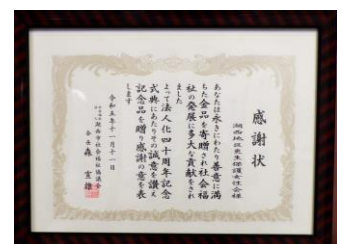 感謝状
湖西地区更生保護女性会様
あなたは永きにわたり善意に満
ちた金品を寄贈され社会福
祉の発展に多大な貢献をされ
ました
よって法人化四十周年記念
式典にあたりその誠意を讃え
記念品を贈り感謝の意を表
します
令和五年十一月十一日
湖西市社会福祉協議会
会長 森